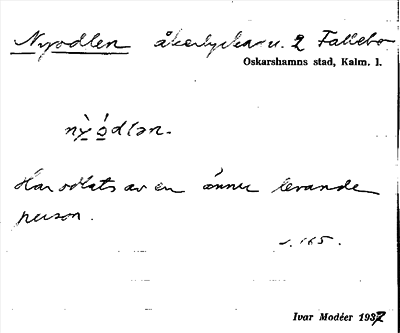 Nyodlen åkerlycka u. 2 Fallebo
Oskarshamns stad, Kalm. l.
nỳ ò̲dlən.
Har odlats av en ännu levande
person.
s. 165.
Ivar Modéer 1937